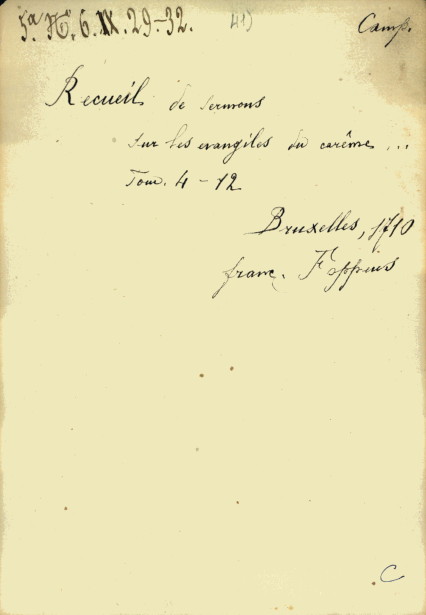 5.ª H. 6. IX. 29-32. Camp.
Recueil de sermons
sur les evangiles du carême ...
Tom. 4 - 12
Bruxelles, 1710
franç. Foppens
C